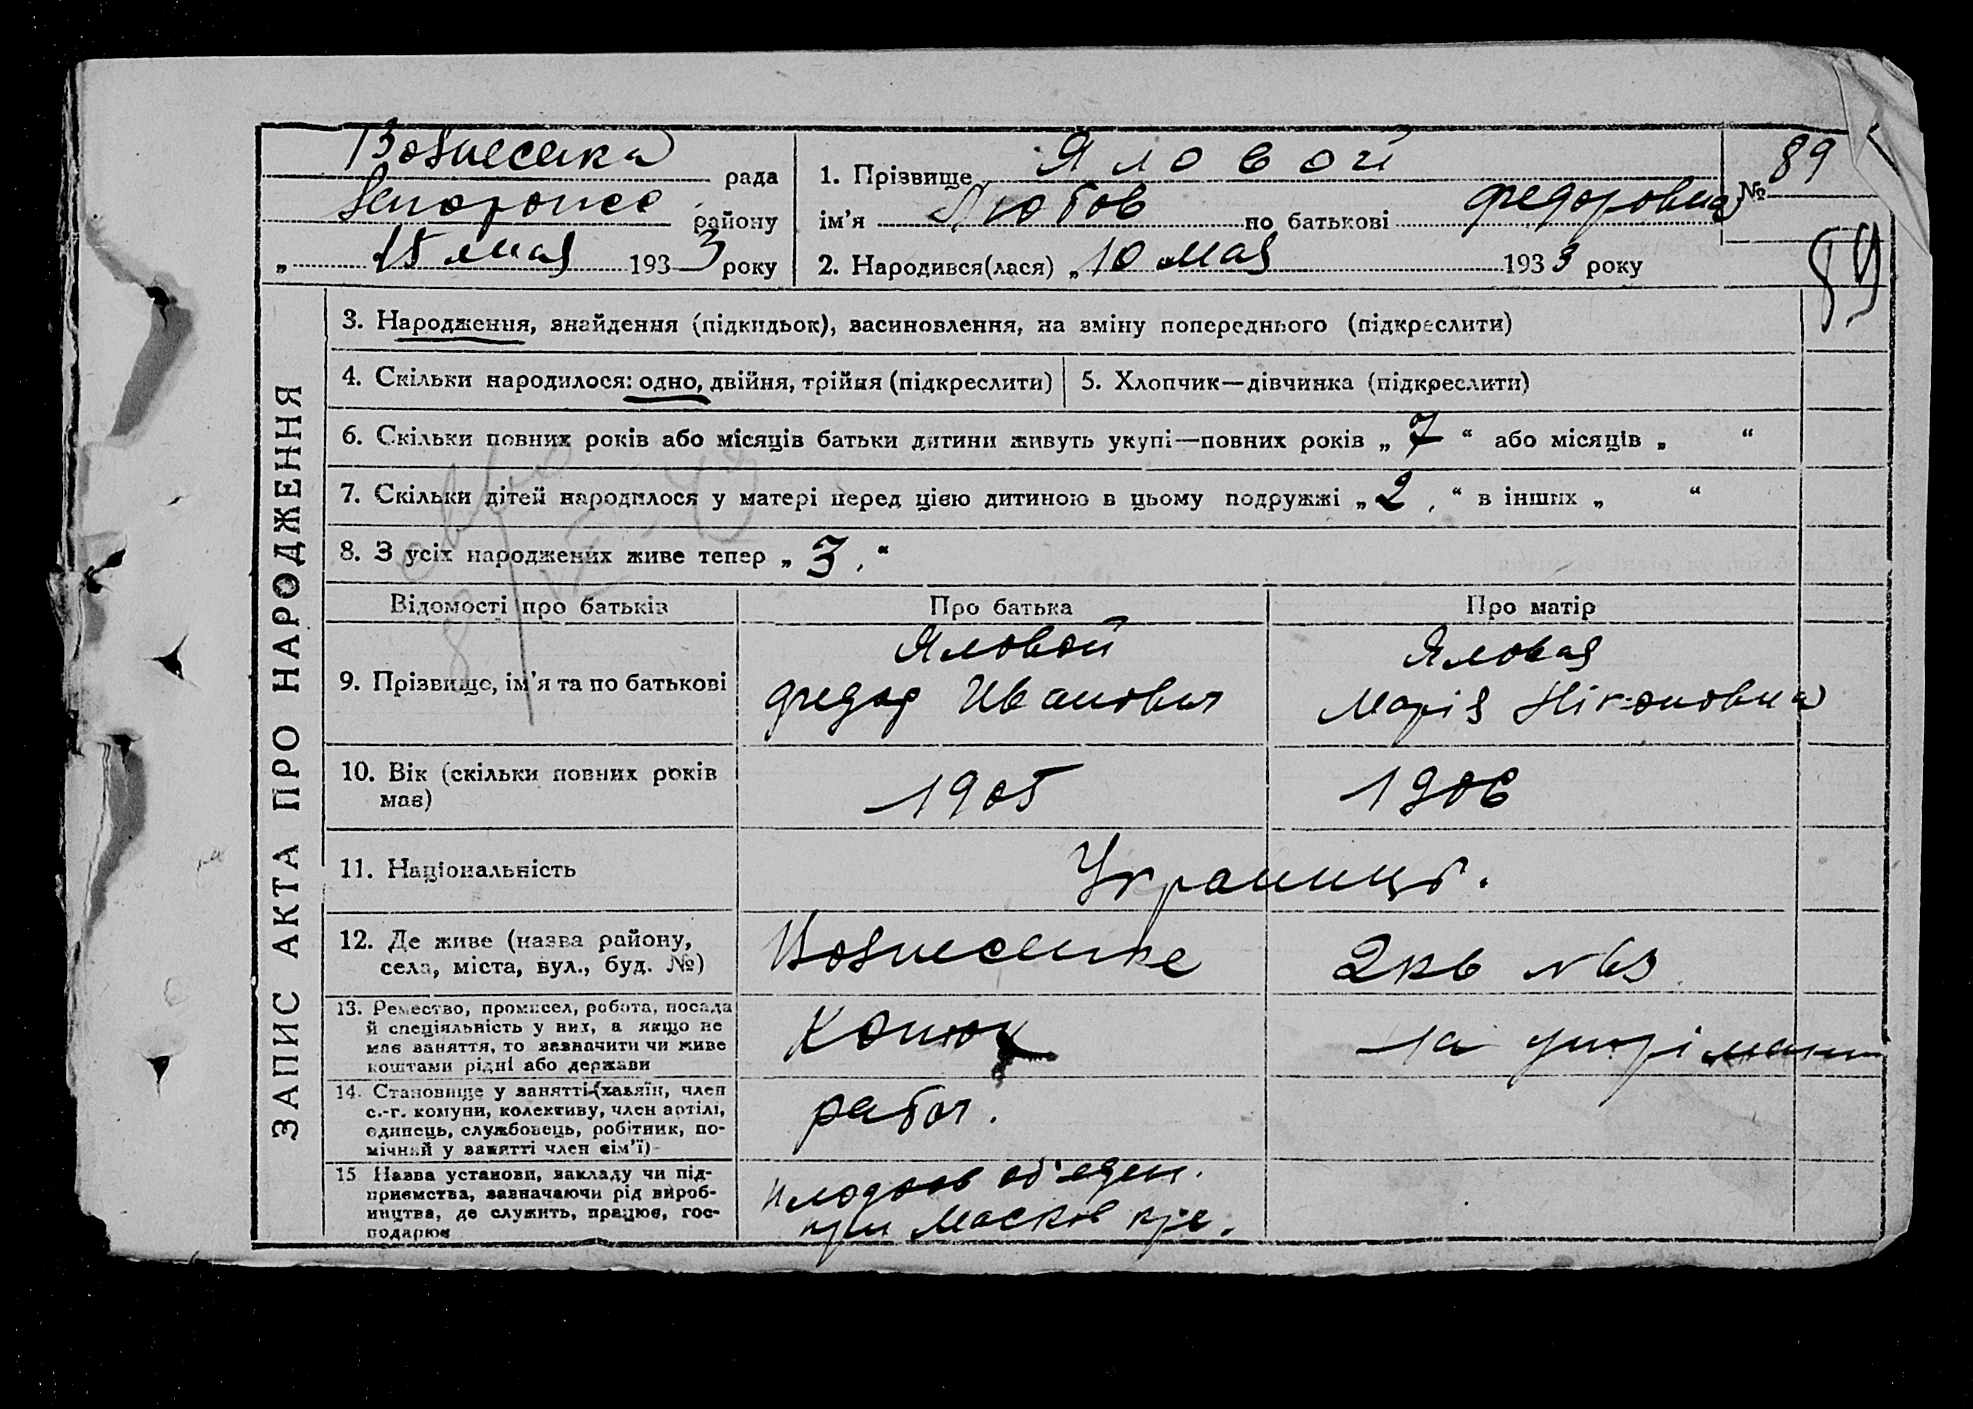 Вознесенка рада
району
„ 15 мая 1933 року
1. Прізвище Яловой
ім'я Любов по батькові Федоровна
2. Народився(лася) „ 10 мая 1933 року
№ 89
89
ЗАПИС АКТА ПРО НАРОДЖЕННЯ
3. Народження, знайдення (підкидьок), засиновлення, на зміну попереднього (підкреслити)
4. Скільки народилося: одно, двійня, трійня (підкреслити)
5. Хлопчик—дівчинка (підкреслити)
6. Скільки повних років або місяців батьки дитини живуть укупі—повних років „ 7 “ або місяців „ “
7. Скільки дітей народилося у матері перед цією дитиною в цьому подружжі „ 2 “ в інших „ “
8. З усіх народжених живе тепер „ 3 “
Відомості про батьків
Про батька
Про матір
9. Прізвище, ім'я та по батькові
Яловой
Федор Иванович
Яловая
Марія Ніконовна
10. Вік (скільки повних років
має)
1905
1906
11. Національність
12. Де живе (назва району,
села, міста, вул., буд. №)
Вознесенке
2 кв №63
13. Ремество, промисел, робота, посада
й спеціяльність у них, а якщо не
має заняття, то зазначити чи живе
коштами рідні або держави
Конюх
на утрімани
14. Становище у занятті (хазяїн, член
с.-г. комуни, колективу, член артілі,
одинець, службовець, робітник, по-
мічний у занятті член сім'ї)
рабоч.
15 Назва установи, закладу чи під-
приємства, зазначаючи рід вироб-
ництва, де служить, працює, гос-
подарює
плодоов об'еден.
при